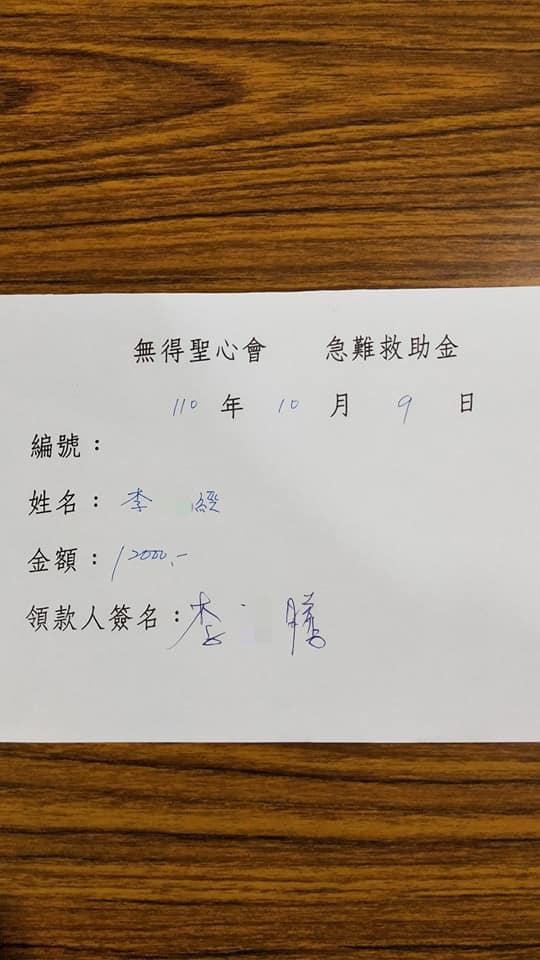 無得聖心會 急難救助金
110 年 10 月 9 日
編號：
姓名：李 經
金額：12000.-
領款人簽名：李 騰